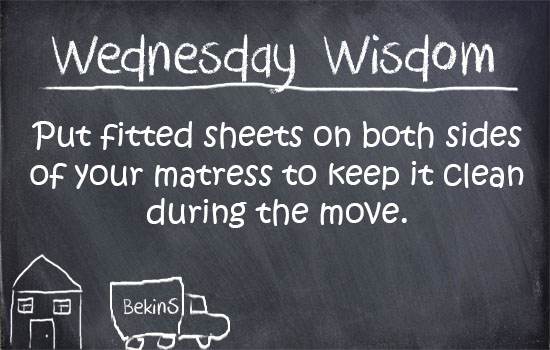 Wednesday Wisdom
Put fitted sheets on both sides
of your matress to keep it clean
during the move.
Bekins